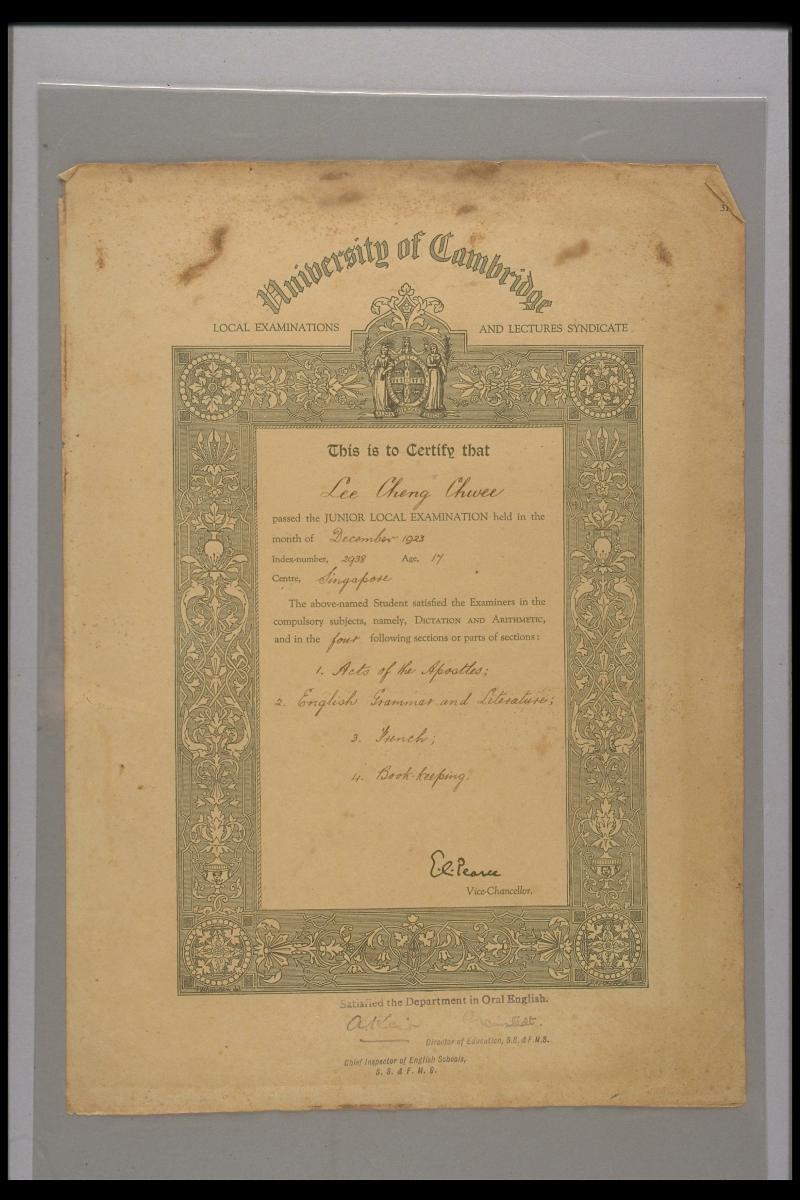 31
University of Cambridge
LOCAL EXAMINATIONS AND LECTURES SYNDICATE
This is to Certify that
Lee Cheng Chwee
passed the JUNIOR LOCAL EXAMINATION held in the
month of December 1923
Index-number, 2938 Age, 17
Centre, Singapore
The above-named Student satisfied the Examiners in the
compulsory subjects, namely, DICTATION AND ARITHMETIC,
and in the four following sections or parts of sections:
1. Acts of the Apostles;
2. English Grammar and Literature;
3. French;
4. Book-keeping.
E.C. Pearce
Vice-Chancellor.
Satisfied the Department in Oral English.
Director of Education, S.S. & F.M.S.
Chief Inspector of English Schools,
S. S. & F. M. S.